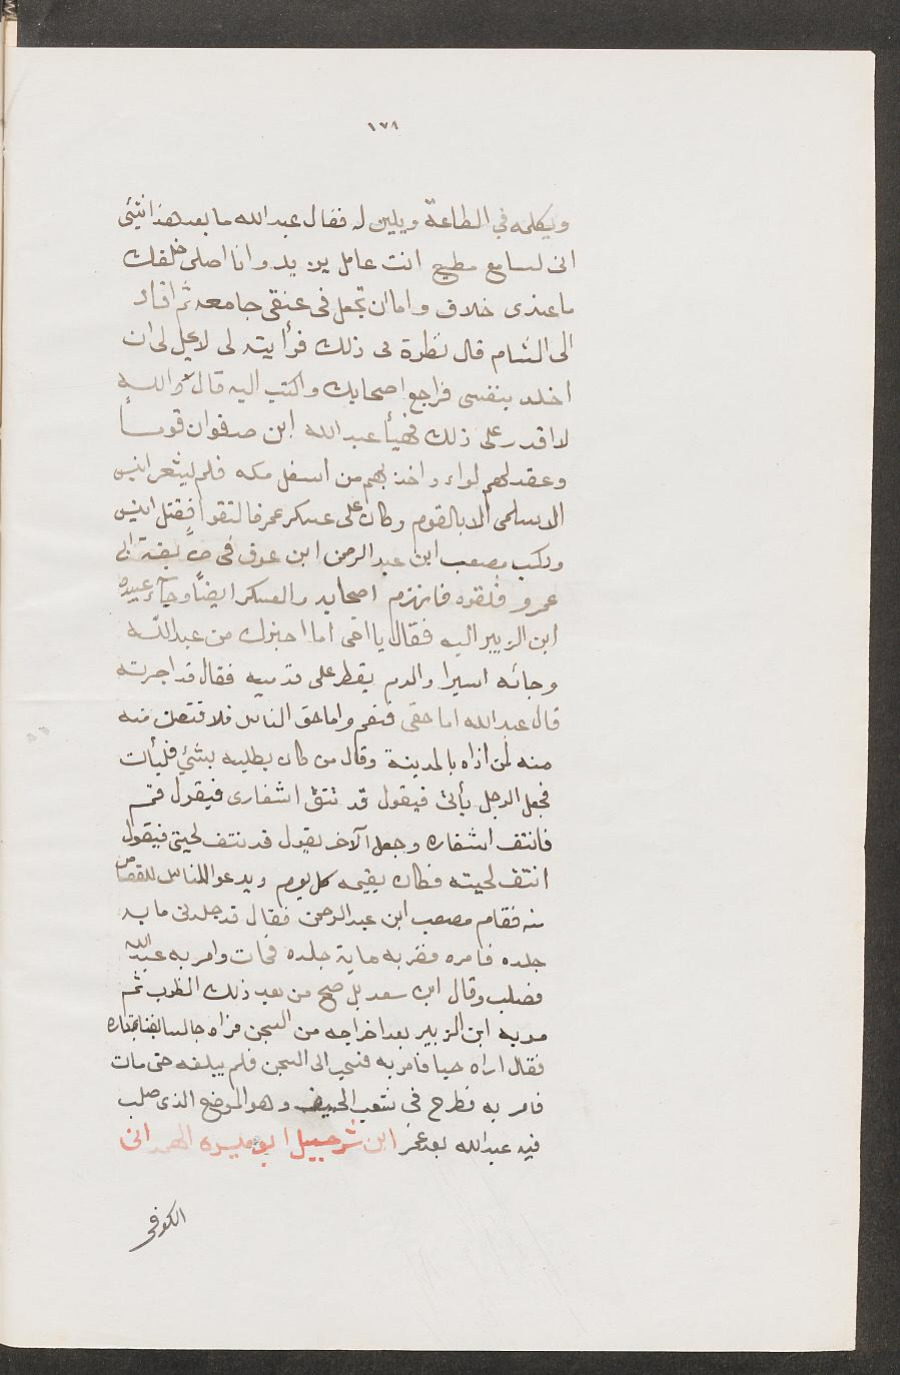 ١٧٨
ويكلمه في الطاعة ويلين له فقال عبد الله ما بعد هذا شئ
انى لسامع مطيع انت عامل يزيد وانا اصلى خلفك
ما عندى خلاف واما ان تجعل فى عنقى جامعه ثم اقاد
الى الشام قال نظرة فى ذلك فرأيته لى لا يحل لى ان
احله بنفسى فراجع اصحابك واكتب اليه قال لا والله
لا اقدر على ذلك فهيأ عبد الله ابن صفوان قوماً
وعقد لهم لواء واخذ بهم من اسفل مكه فلم يشعر انيس
الاسلمى الا بالقوم وكان على عسكر عمر فالتقوا فقتل انيس
وركب مصعب ابن عبد الرحمن ابن عوف فى
عمرو فلقوه فانهزم اصحابه والعسكر ايضاً وجآء عبيده
ابن الزبير اليه فقال يا اخى اما اجيرك من عبد الله
وجائه اسيرا والدم يقطر على قدميه فقال قد اجرته
قال عبد الله اما حقى فنعم واما حق الناس فلاقتصن منه
منه لمن اذاه بالمدينة وقال من كان يطلبه بشئ فليأت
فجعل الرجل يأتى فيقول قد نتف اشفارى فيقول قم
فانتف اشفاره وجعل الآخر يقول قد نتف لحيتى فيقول
انتف لحيته فكان يقيمه كل يوم ويدعو الناس للقصاص
منه فقام مصعب ابن عبد الرحمن فقال قد جلدنى مايه
جلده فامره فضربه ماية جلده فمات وامر به عبد الله
فصلب وقال ابن سعد بل صح من بعد ذلك الضرب ثم
مر به ابن الزبير بعد اخراجه من السجن فراه جالسا
فقال اراه حيا فامر به فسحب الى السجن فلم يبلغه حتى مات
فامر به فطرح فى شعب الجيف وهو الموضع الذى صلب
فيه عبد الله بعد عمر ابن شرحبيل ابو ميسره الهمدانى
الكوفى